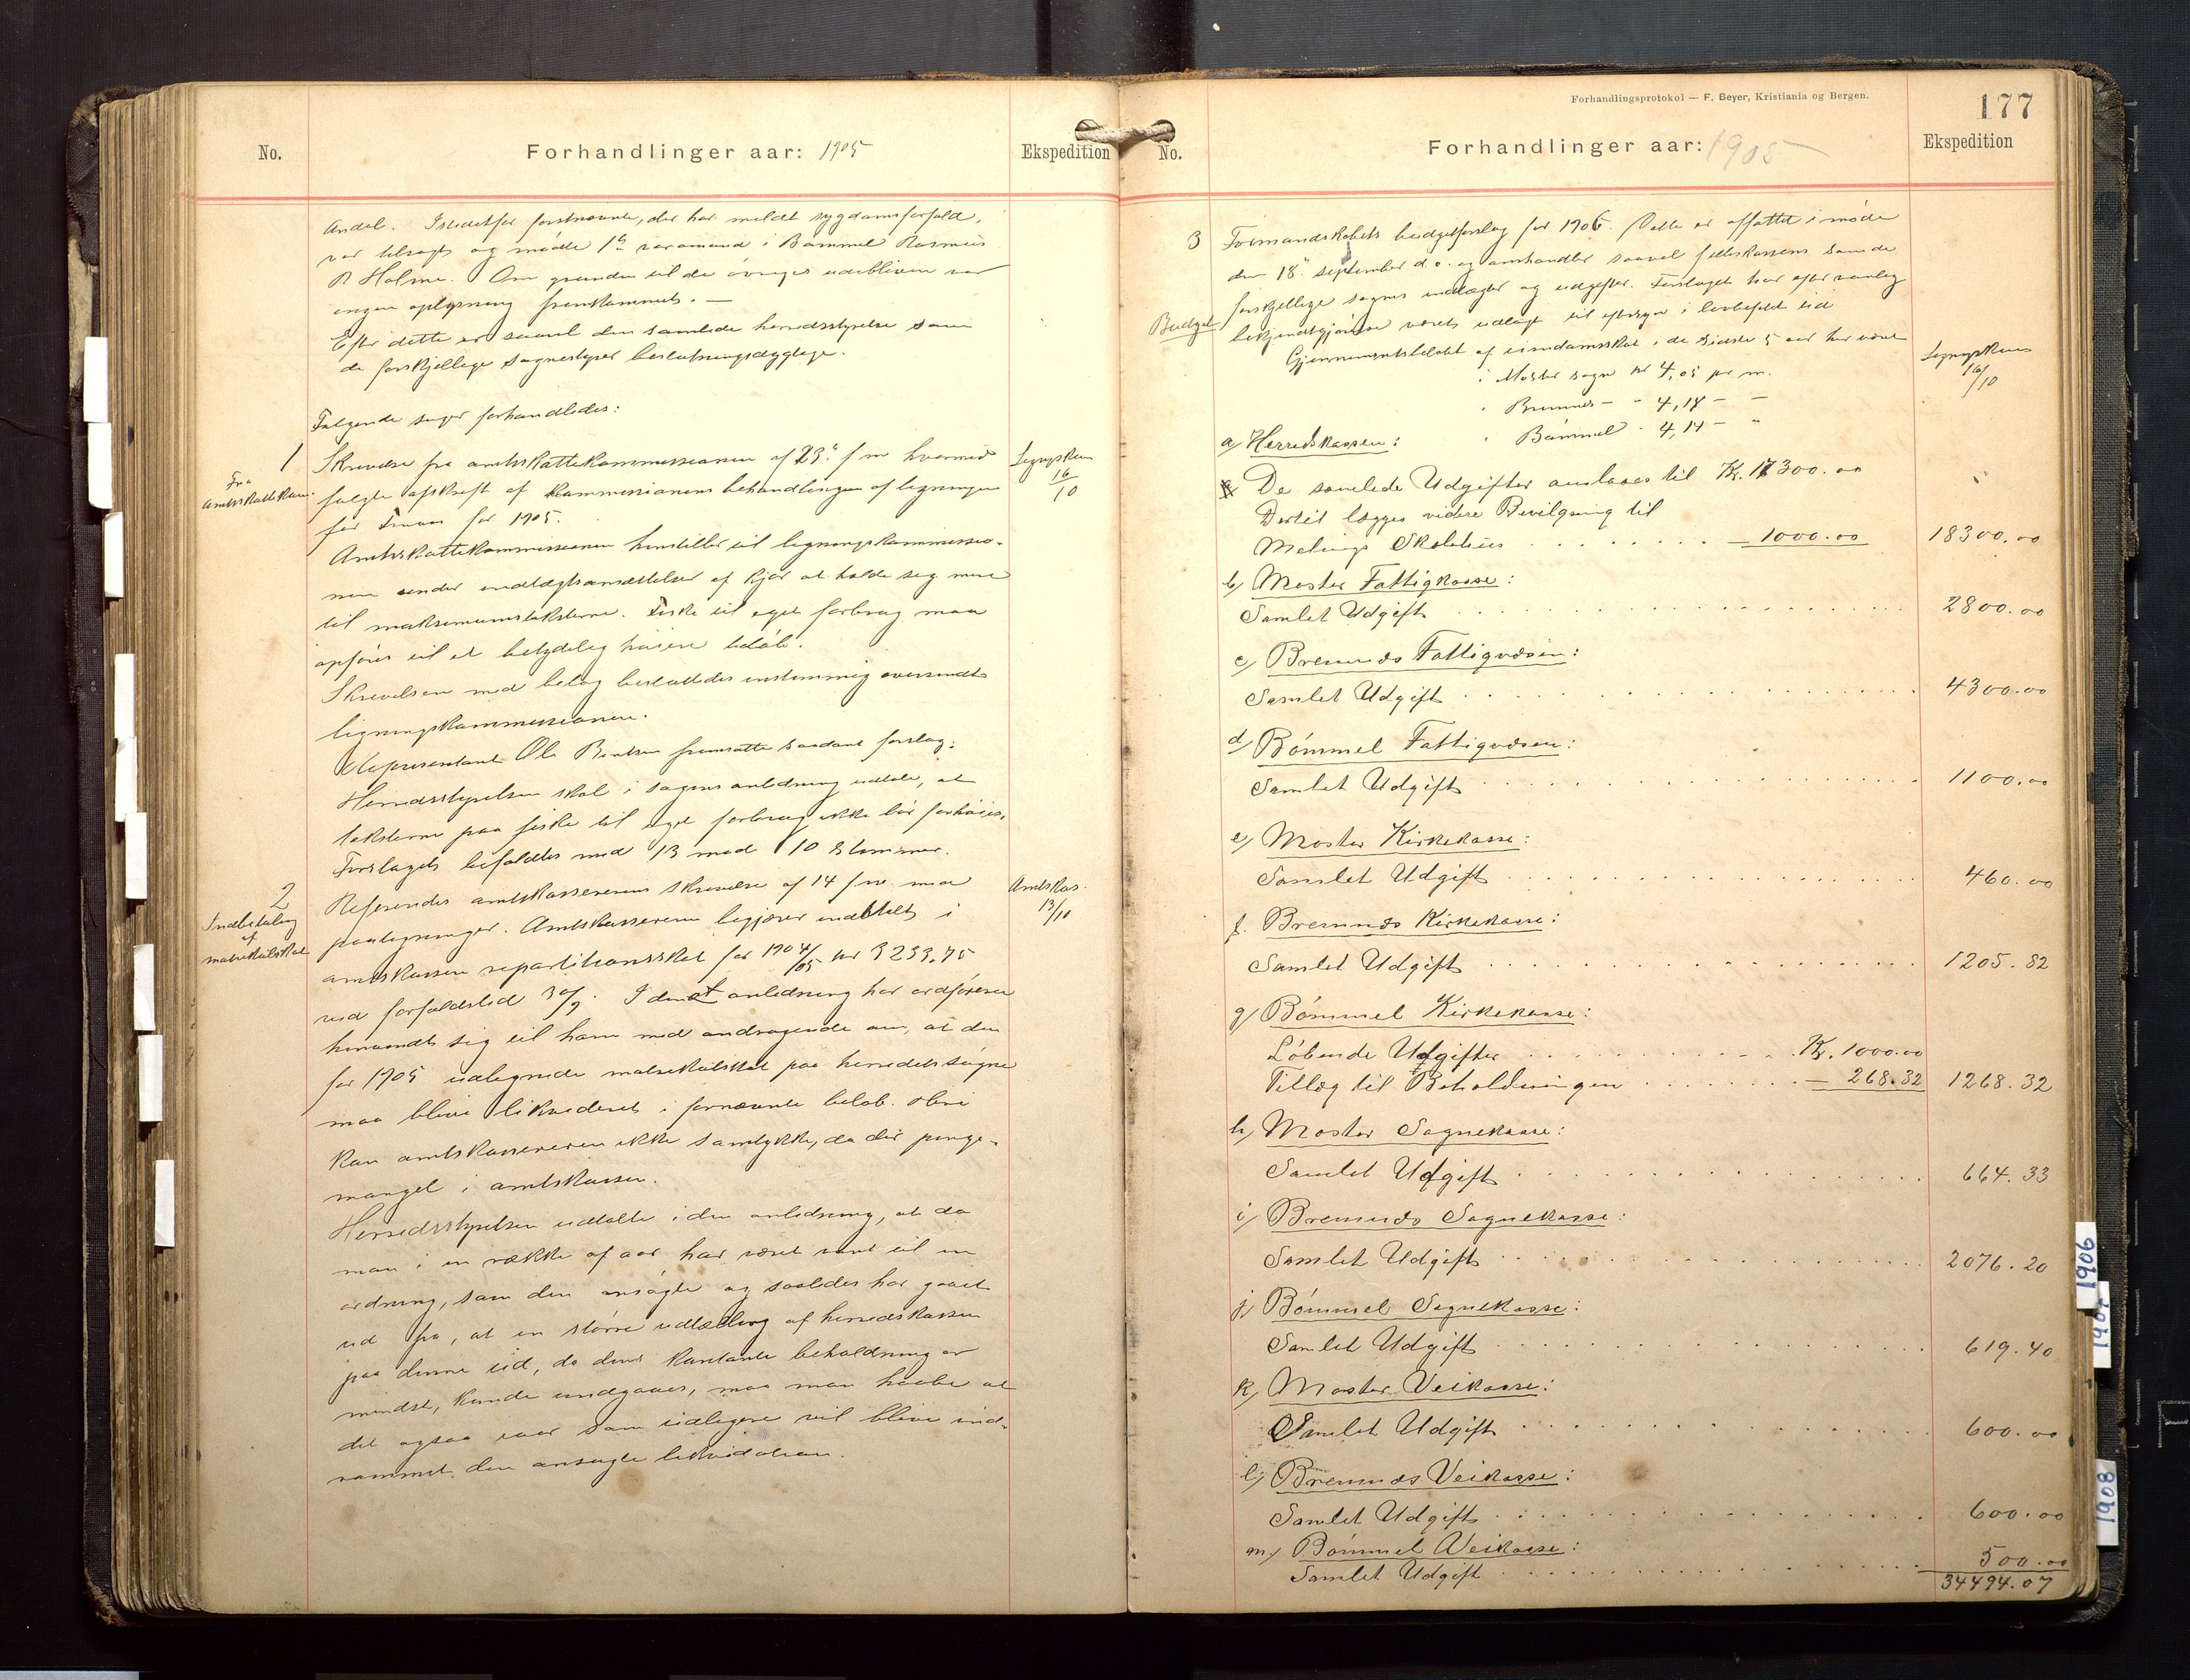 No. Forhandlinger aar: 1905 Ekspedition
Andel. Istedetfor førstnævnte, der har meldt sygdomsforfald,
var tilsagt og mødte 1ste varamand i Bømmel Rasmus
R Holme. Om grunden til de øvriges udebliven var
ingen oplysning fremkommet. —
Efter dette er saavel den samlede herredsstyrelse som
de forskjellige sognestyrer beslutningsdygtige.
Følgende sager forhandledes:
1
Fra
amtsskattekom.
Skrivelse fra amtsskattekommissionen af 23de f m hvormed
fulgte afskrift af kommissionens behandlingen af ligningen
for Finnaas for 1905.
Lignpskom
16/10
Amtsskattekommissionen henstiller til ligningskommissio-
nen under indtægtsansættelser af kjør at holde sig mere
til maksimumstaksterne. Fiske til eget forbrug maa
opføres til et betydelig høiere beløb.
Skrivelsen med belæg besluttedes enstemmig oversendt
ligningskommissionen.
Repræsentant Ole Bentsen fremsatte saadant forslag:
Herredsstyrelsen skal i sagens anledning udtale, at
taksterne paa fiske til eget forbrug ikke bør forhøies.
Forslaget bifaldtes med 13 mod 10 stemmer.
2
Indbetaling
af
matrikulskat
Refereredes amtskassererens skrivelse af 14 f m
paaligninger. Amtskassereren begjærer indbetalt i
amtskassen repartitionsskat for 1904/05 kr 3233,75
ved forfaldstid 30/9. I den anledning har ordføreren
henvendt sig til ham med andragende om, at den
for 1905 udlignede matrikulskat paa herredets sogne
maa blive likvideret i fornævnte beløb. Hvi
kan amtskassereren ikke samtykke, da der penge-
mangel i amtskassen.
Amtskas.
13/10
Herredsstyrelsen udtalte i den anledning, at da
man i en række af aar har været vant til en
ordning, som den ansøgte og saaledes har gaaet
ud fra, at en større udtælling af herredskassen
paa denne tid, da dens kontante beholdning er
mindst, kunde undgaaes, maa man haabe at
det ogsaa iaar som tidligere vil blive ind-
rømmet den ansøgte likvidation.
Forhandlingsprotokol — F. Beyer, Kristiania og Bergen.
177
No. Forhandlinger aar: 1905 Ekspedition
3
Budget
Formandskabets budgetforslag for 1906. Dette er affattet i møde
den 18de september d. a. og omhandler saavel felleskassens som de
forskjellige sognes indtægter og udgifter. Forslaget har efter vanlig
bekjendtgjørelse været udlagt til eftersyn i lovbefalet tid
Gjennemsnitsbeløbet af eiendomsskat i de sidste 5 aar har været
i Moster sogn kr 4,05 pr m.
" Bremnes — " 4,18 — —
" Bømmel " 4,14 — "
Lignpskom
16/10
a) Herredskassen:
De samlede Udgifter anslaaes til Kr. 17300.00
Dertil lægges videre Bevilgning til
Melings Skolehus . . . — 1000.00 18300.00
b) Moster Fattigkasse:
Samlet Udgift . . . 2800.00
c) Bremnes Fattigvæsen:
Samlet Udgift . . . 4300.00
d) Bømmel Fattigvæsen:
Samlet Udgift . . . 1100.00
e) Moster Kirkekasse:
Samlet Udgift . . . 460.00
f. Bremnes Kirkekasse:
Samlet Udgift . . . 1205.82
g) Bømmel Kirkekasse:
Løbende Udgifter . . . Kr. 1000.00
Tillæg til Beholdningen . . . — 268.32 1268.32
h) Moster Sognekasse:
Samlet Udgift . . . 664.33
i) Bremnes Sognekasse:
Samlet Udgift . . . 2076.20
j) Bømmel Sognekasse:
Samlet Udgift . . . 619.40
k) Moster Veikasse:
Samlet Udgift . . . 600.00
l) Bremnes Veikasse:
Samlet Udgift . . . 600.00
m) Bømmel Veikasse:
Samlet Udgift . . . 500.00
34494.07
1906
1908